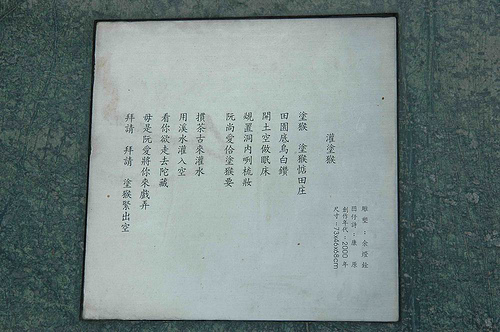 灌塗猴
雕塑：余燈銓
囝仔詩：康原
創作年代：2000年
尺寸：73x46x68cm
塗猴 塗猴惦田庄
田園底烏白鑽
開土空做眠床
覕置洞內咧梳妝
阮尚愛佮塗猴耍
摜茶古來灌水
用溪水灌入空
看你欲走去陀藏
毋是阮愛將你來戲弄
拜請 拜請 塗猴緊出空